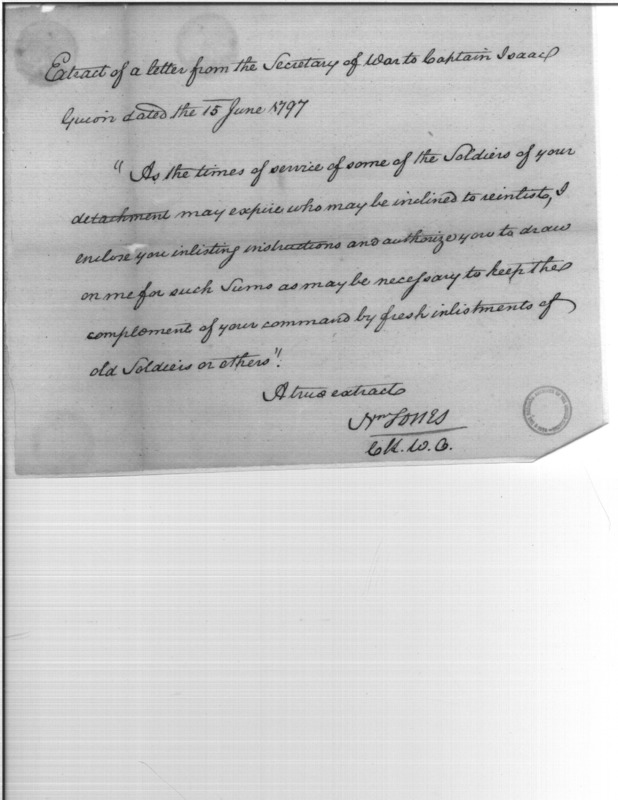 Extract of a letter from the Secretary of War to Captain Isaac
Guion dated the 15 June 1797
"As the times of service of some of the Soldiers of your
detachment may expire who may be inclined to reinlist, I
enclose you inlisting instructions and authorize you to draw
on me for such Sums as may be necessary to keep the
complement of your command by fresh inlistments of
old Soldiers or others".
A true extract
Wm JONES
Ck. W. O.